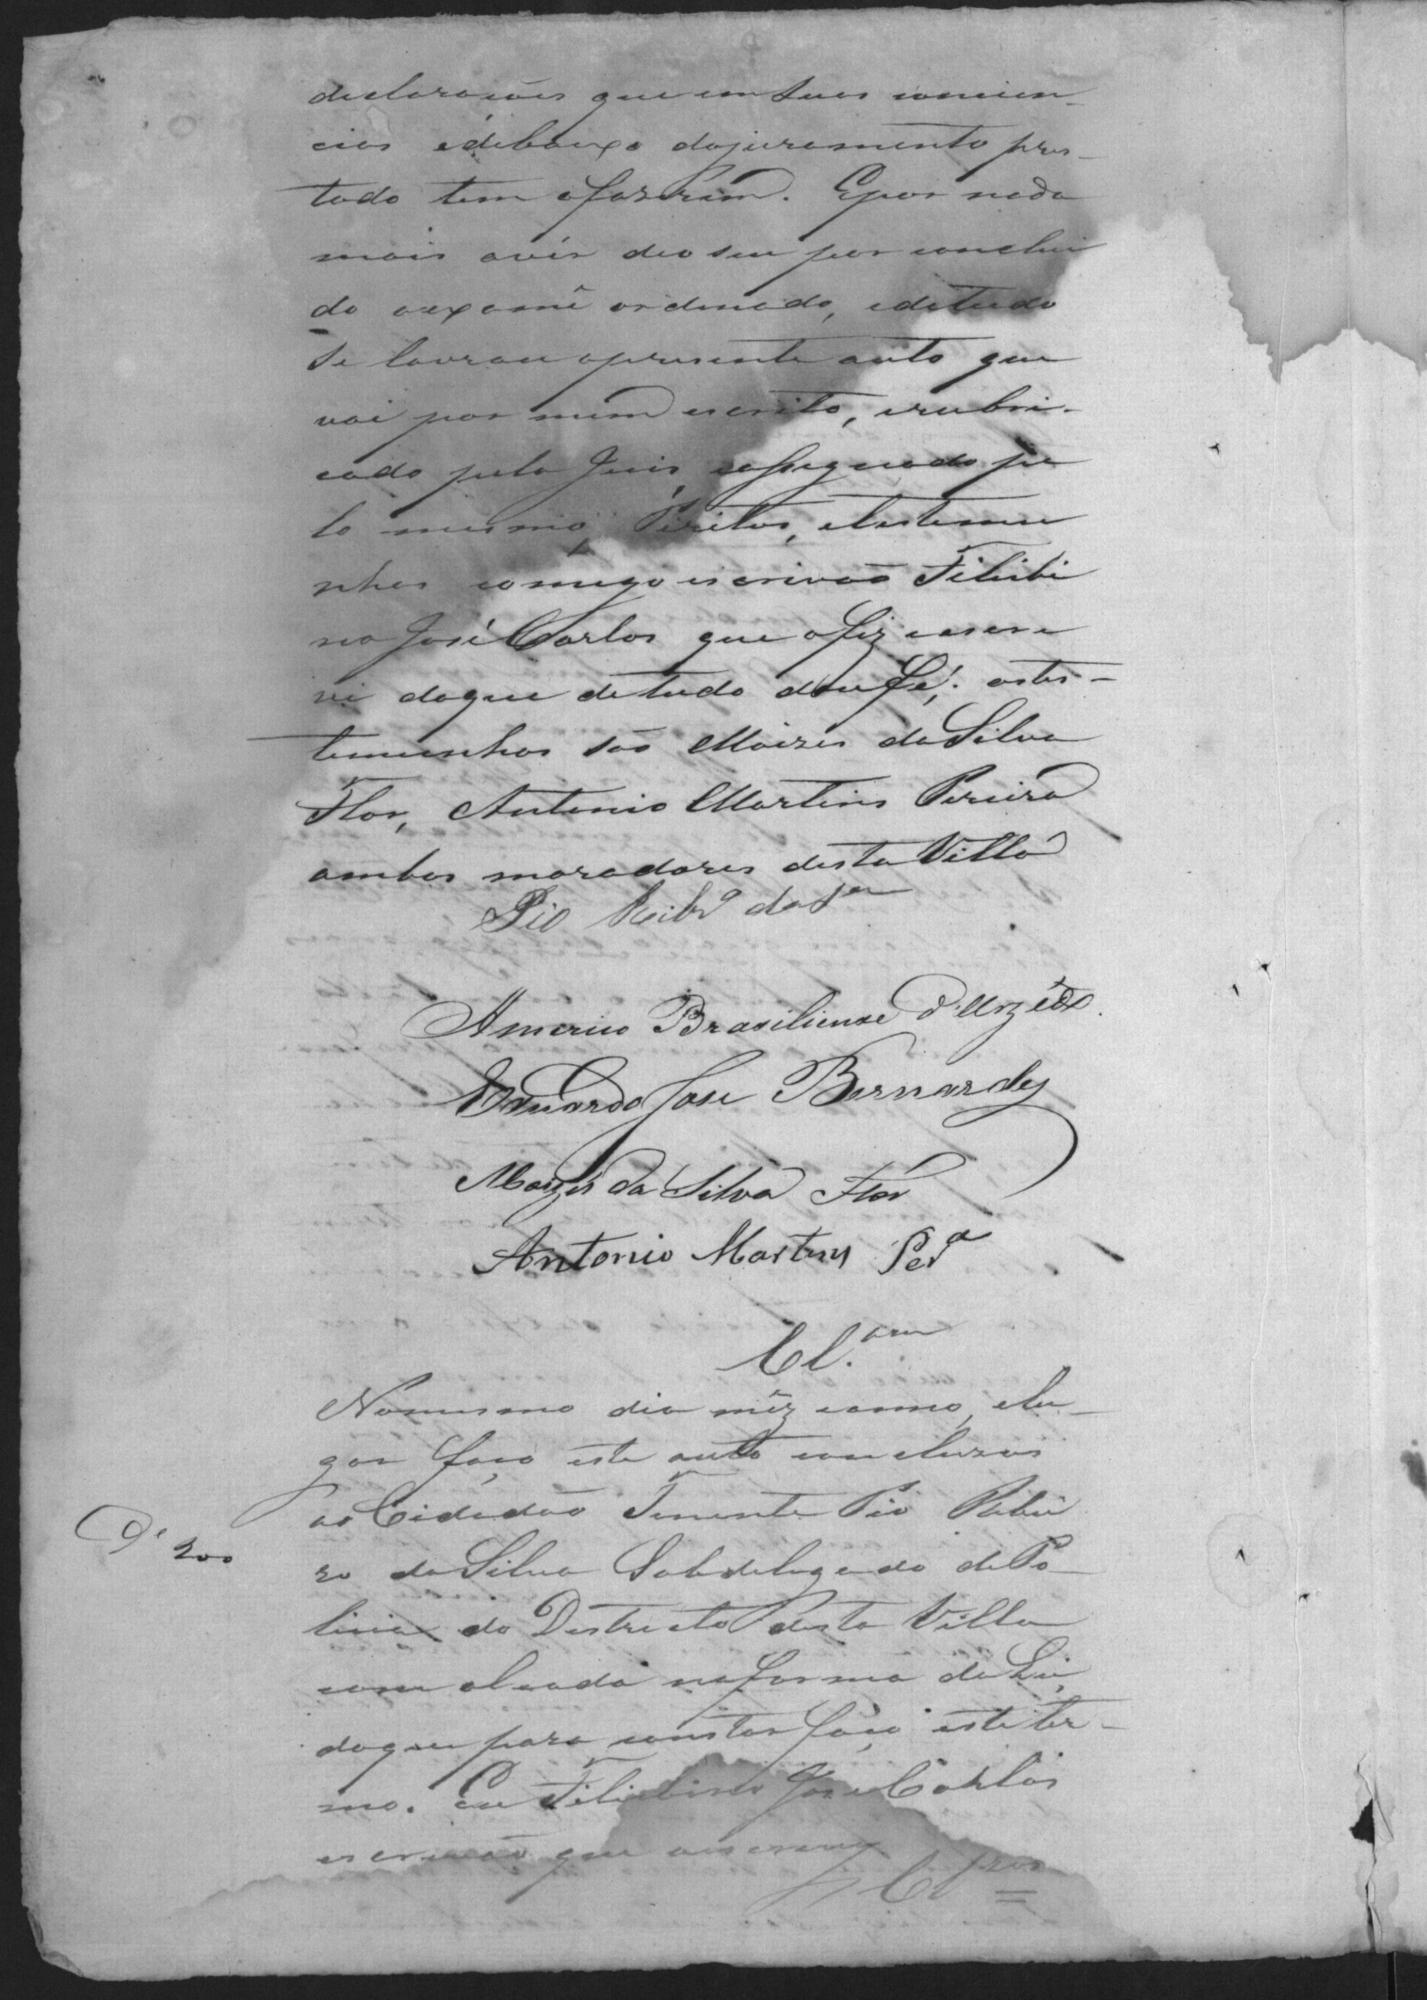 declaraçoes que em suas concien-
cias edebaixo dojuramento pres-
tado tem afazerem. Epor nada
mais avêr deo seu por conclui
do oexame ordenado, edetudo
se lavrou apresente auto que
vai por mim escrito, erubri-
cado pelo Juis, eaßignado pe
lo mesmo, Peritos, etestemu
nhas comigo escrivão Filisbi
no José Carlos que ofiz eescre
vi doque detudo doufé; astes-
temunhas são Moizes da Silva
Flor, Antonio Martins Pereira
ambos moradores desta Villa
Pio Ribrº da Sª
Americo Brasiliense d'Urzêdo.
Eduardo Jose Bernardes
Moyzés da Silva Flor
Antonio Martins Perª
Cl.ᵃᵐ
Nomesmo dia mêz eanno, elu-
gar faço este auto concluzos
ao Cidadão Tenente Pio Ribei
ro da Silva Subdelegado de Po-
licia do Destricto desta Villa
com alçada naforma da Lei,
doque para constar faço este ter-
mo. Eu Filisbino Jose Carlos
escrivão que oescrevy
Clᶻᵒˢ
Dº 200